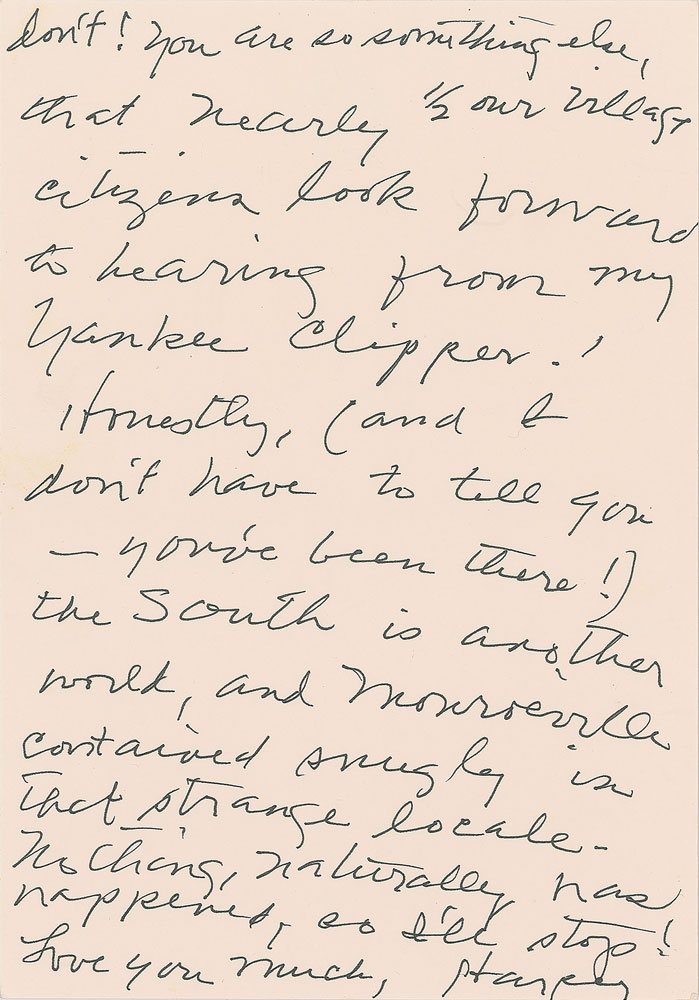 don't! You are so something else,
that nearly 1/2 our village
citizens look forward
to hearing from my
Yankee Clipper.!
Honestly, (and I
don't have to tell you
— you've been there!)
the South is another
world, and Monroeville
contained snugly in
that strange locale-
Nothing, naturally has
happened, so I'll stop!
Love you much, Harper